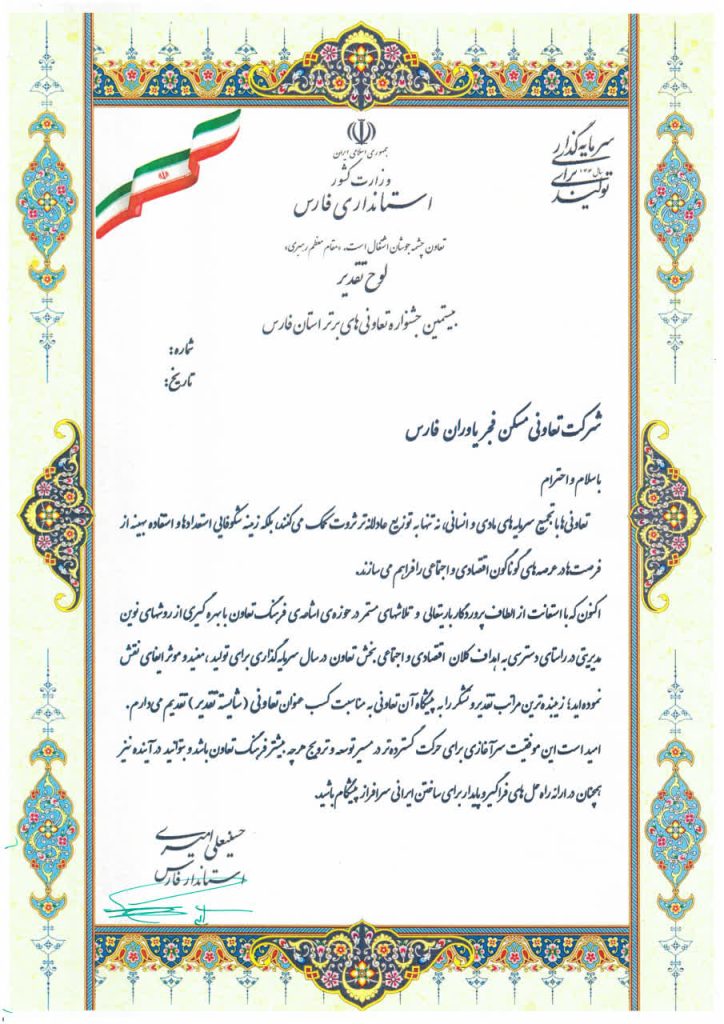 جمهوری اسلامی ایران
وزارت کشور
استانداری فارس
سرمایه گذاری
سال ۱۴۰۴
برای
تولید
تعاون چشمه جوشان اشتغال است. «مقام معظم رهبری»
لوح تقدیر
بیستمین جشنواره تعاونی های برتر استان فارس
شماره:
تاریخ:
شرکت تعاونی مسکن فجر یاوران فارس
باسلام و احترام
تعاونی ها با تجمیع سرمایه های مادی و انسانی، نه تنها به توزیع عادلانه تر ثروت کمک می کنند، بلکه زمینه شکوفایی استعدادها و استفاده بهینه از
فرصت ها در عرصه های گوناگون اقتصادی و اجتماعی را فراهم می سازند.
اکنون که با استعانت از الطاف پروردگار باریتعالی و تلاشهای مستمر در حوزه ی اشاعه ی فرهنگ تعاون با بهره گیری از روشهای نوین
مدیریتی در راستای دسترسی به اهداف کلان اقتصادی و اجتماعی بخش تعاون در سال سرمایه گذاری برای تولید، مفید و موثر ایفای نقش
نموده اید؛ زیبنده ترین مراتب تقدیر و تشکر را به پیشگاه آن تعاونی به مناسبت کسب عنوان تعاونی (شایسته تقدیر) تقدیم می دارم.
امید است این موفقیت سرآغازی برای حرکت گسترده تر در مسیر توسعه و ترویج هرچه بیشتر فرهنگ تعاون باشد و بتوانید در آینده نیز
همچنان در ارائه راه حل های فراگیر و پایدار برای ساختن ایرانی سرافراز پیشگام باشید.
حسینعلی امیری
استاندار فارس